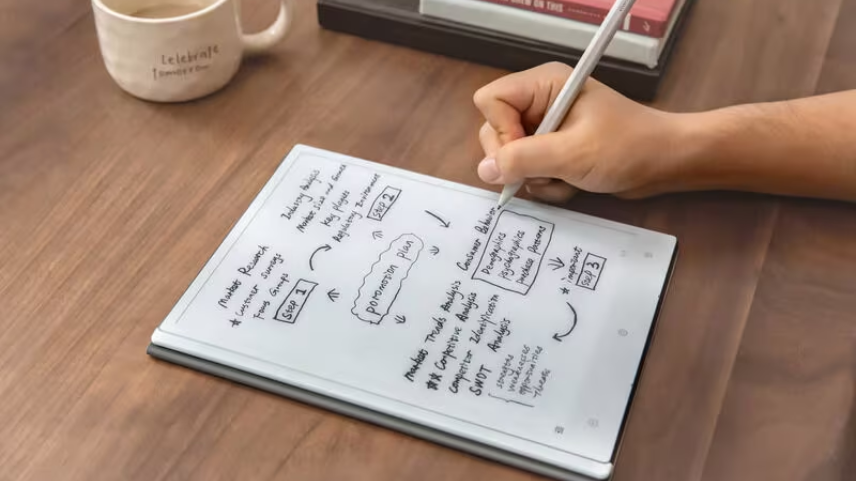 Celebrate
Tomorrow
Industry Analysis
Market size and Growth
Key players
Regulatory Environment
Step 2
Market Research
* Customer surveys
Focus Groups
Step 1
poromotion plan
Consumer Behavior
Demographics
psychographics
purchase patterns
* important
Step 3
Market Trends Analysis
** Competitive Analysis
Competitor Identification
SWOT Analysis
strengths
weaknesses
opportunities
Threats